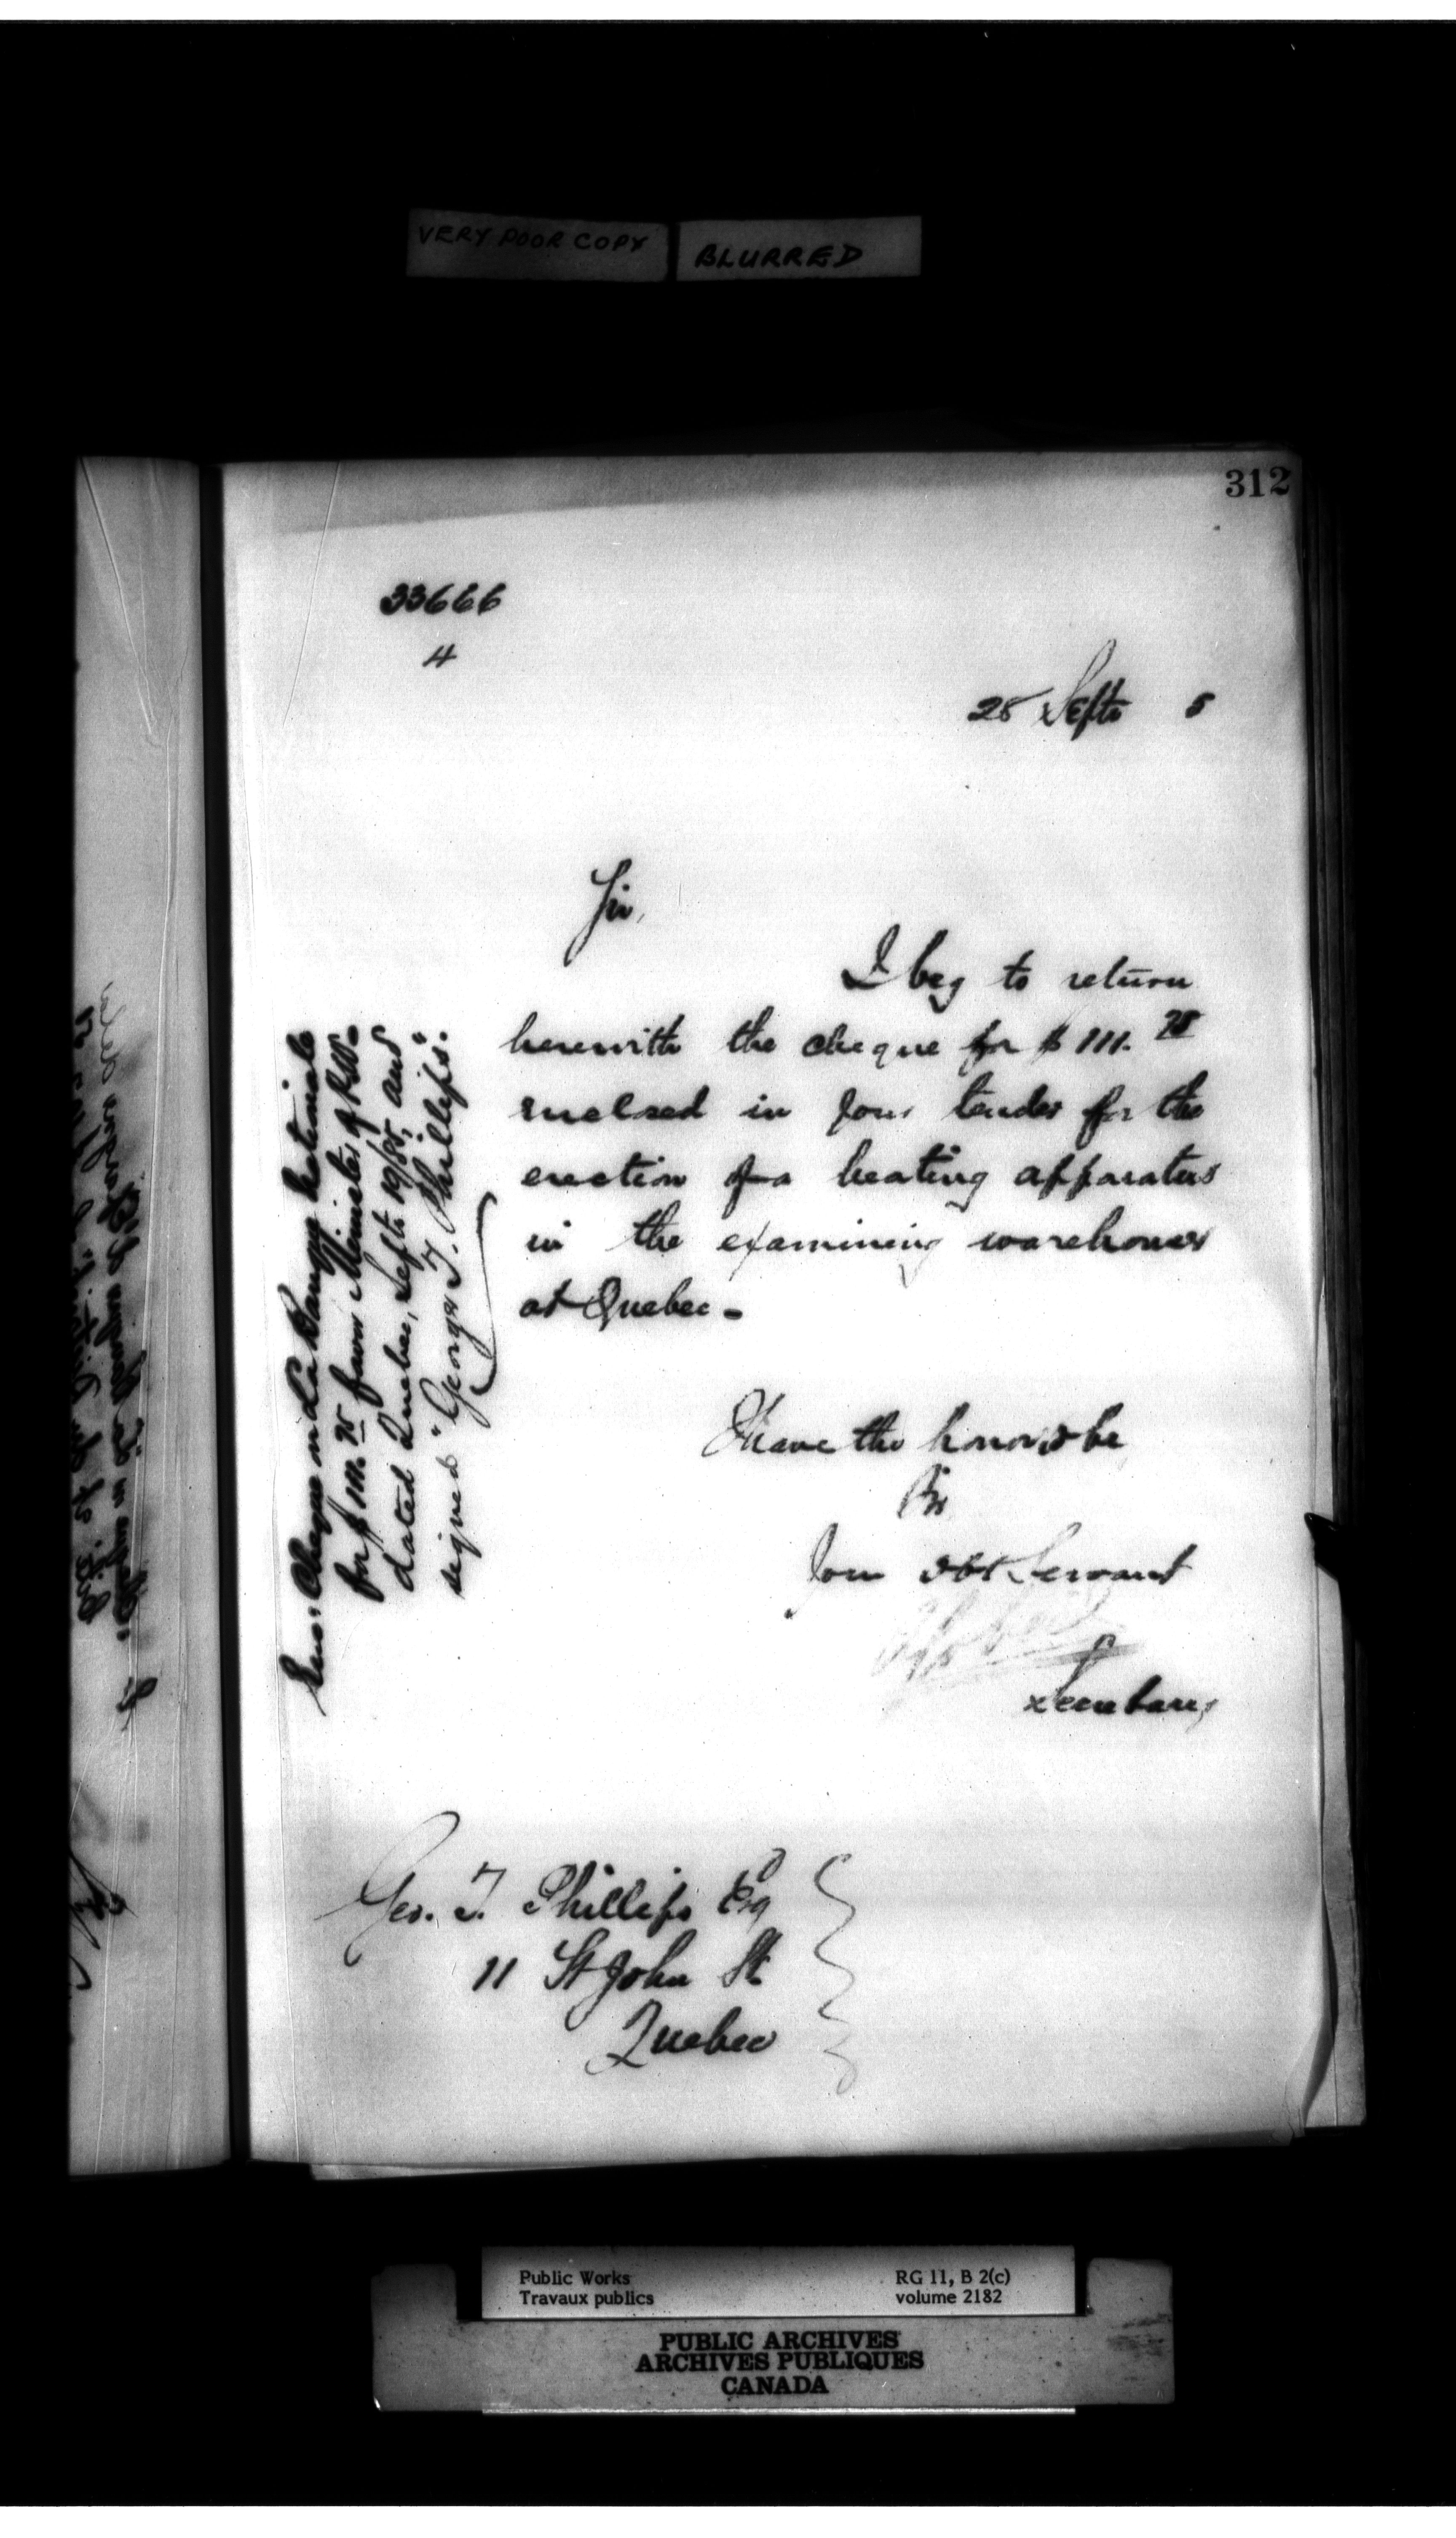 VERY POOR COPY BLURRED
312
33666
4
25 Septr 5
Sir,
I beg to return
herewith the cheque for $111.75
enclosed in your tender for the
erection of a heating apparatus
in the examining warehouses
at Quebec –
I have the honor to be
Sir
Your obt Servant
Secretary
Enc: Cheque on La Banque Nationale
for $111.75 favor Minister of P.W.
dated Quebec, Septr 19/85, and
signed "George T. Phillips."
Geo. T. Phillips Esq
11 St John St
Quebec
Public Works RG 11, B 2(c)
Travaux publics volume 2182
PUBLIC ARCHIVES
ARCHIVES PUBLIQUES
CANADA